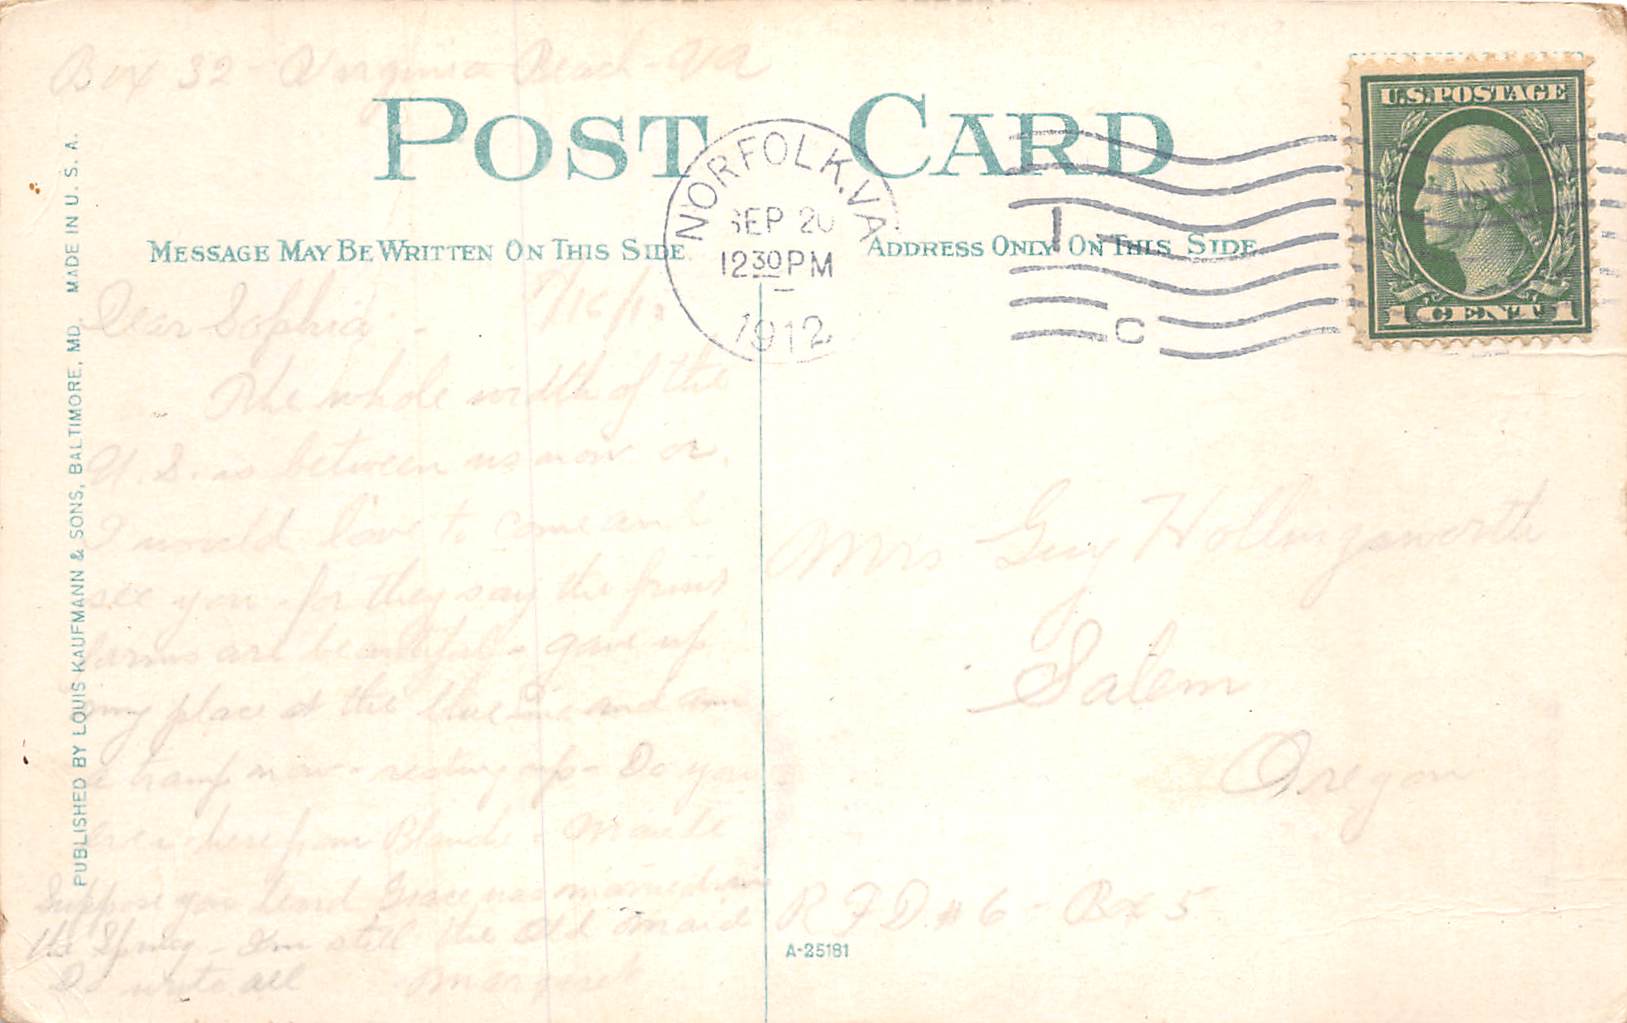 Box 32 - Virginia Beach - VA
POST CARD
MESSAGE MAY BE WRITTEN ON THIS SIDE
ADDRESS ONLY ON THIS SIDE
NORFOLK, VA
SEP 20
1230 PM
1912
1
C
U.S. POSTAGE
1 CENT 1
PUBLISHED BY LOUIS KAUFMANN & SONS, BALTIMORE, MD. MADE IN U. S. A.
Dear Sophia - 9/16/12
The whole width of the
U.S. is between us now
I would love to come and
see you - for they say the
farms are beautiful - gave up
my place at the and am
a tramp now - resting up - Do you
ever here from Blanch
Suppose you heard Grace was married in
the Spring - I'm still the old maid
Do write all Margaret
Mrs Guy Hollingsworth
Salem
Oregon
R F D. # 6 - Box 5
A-25181